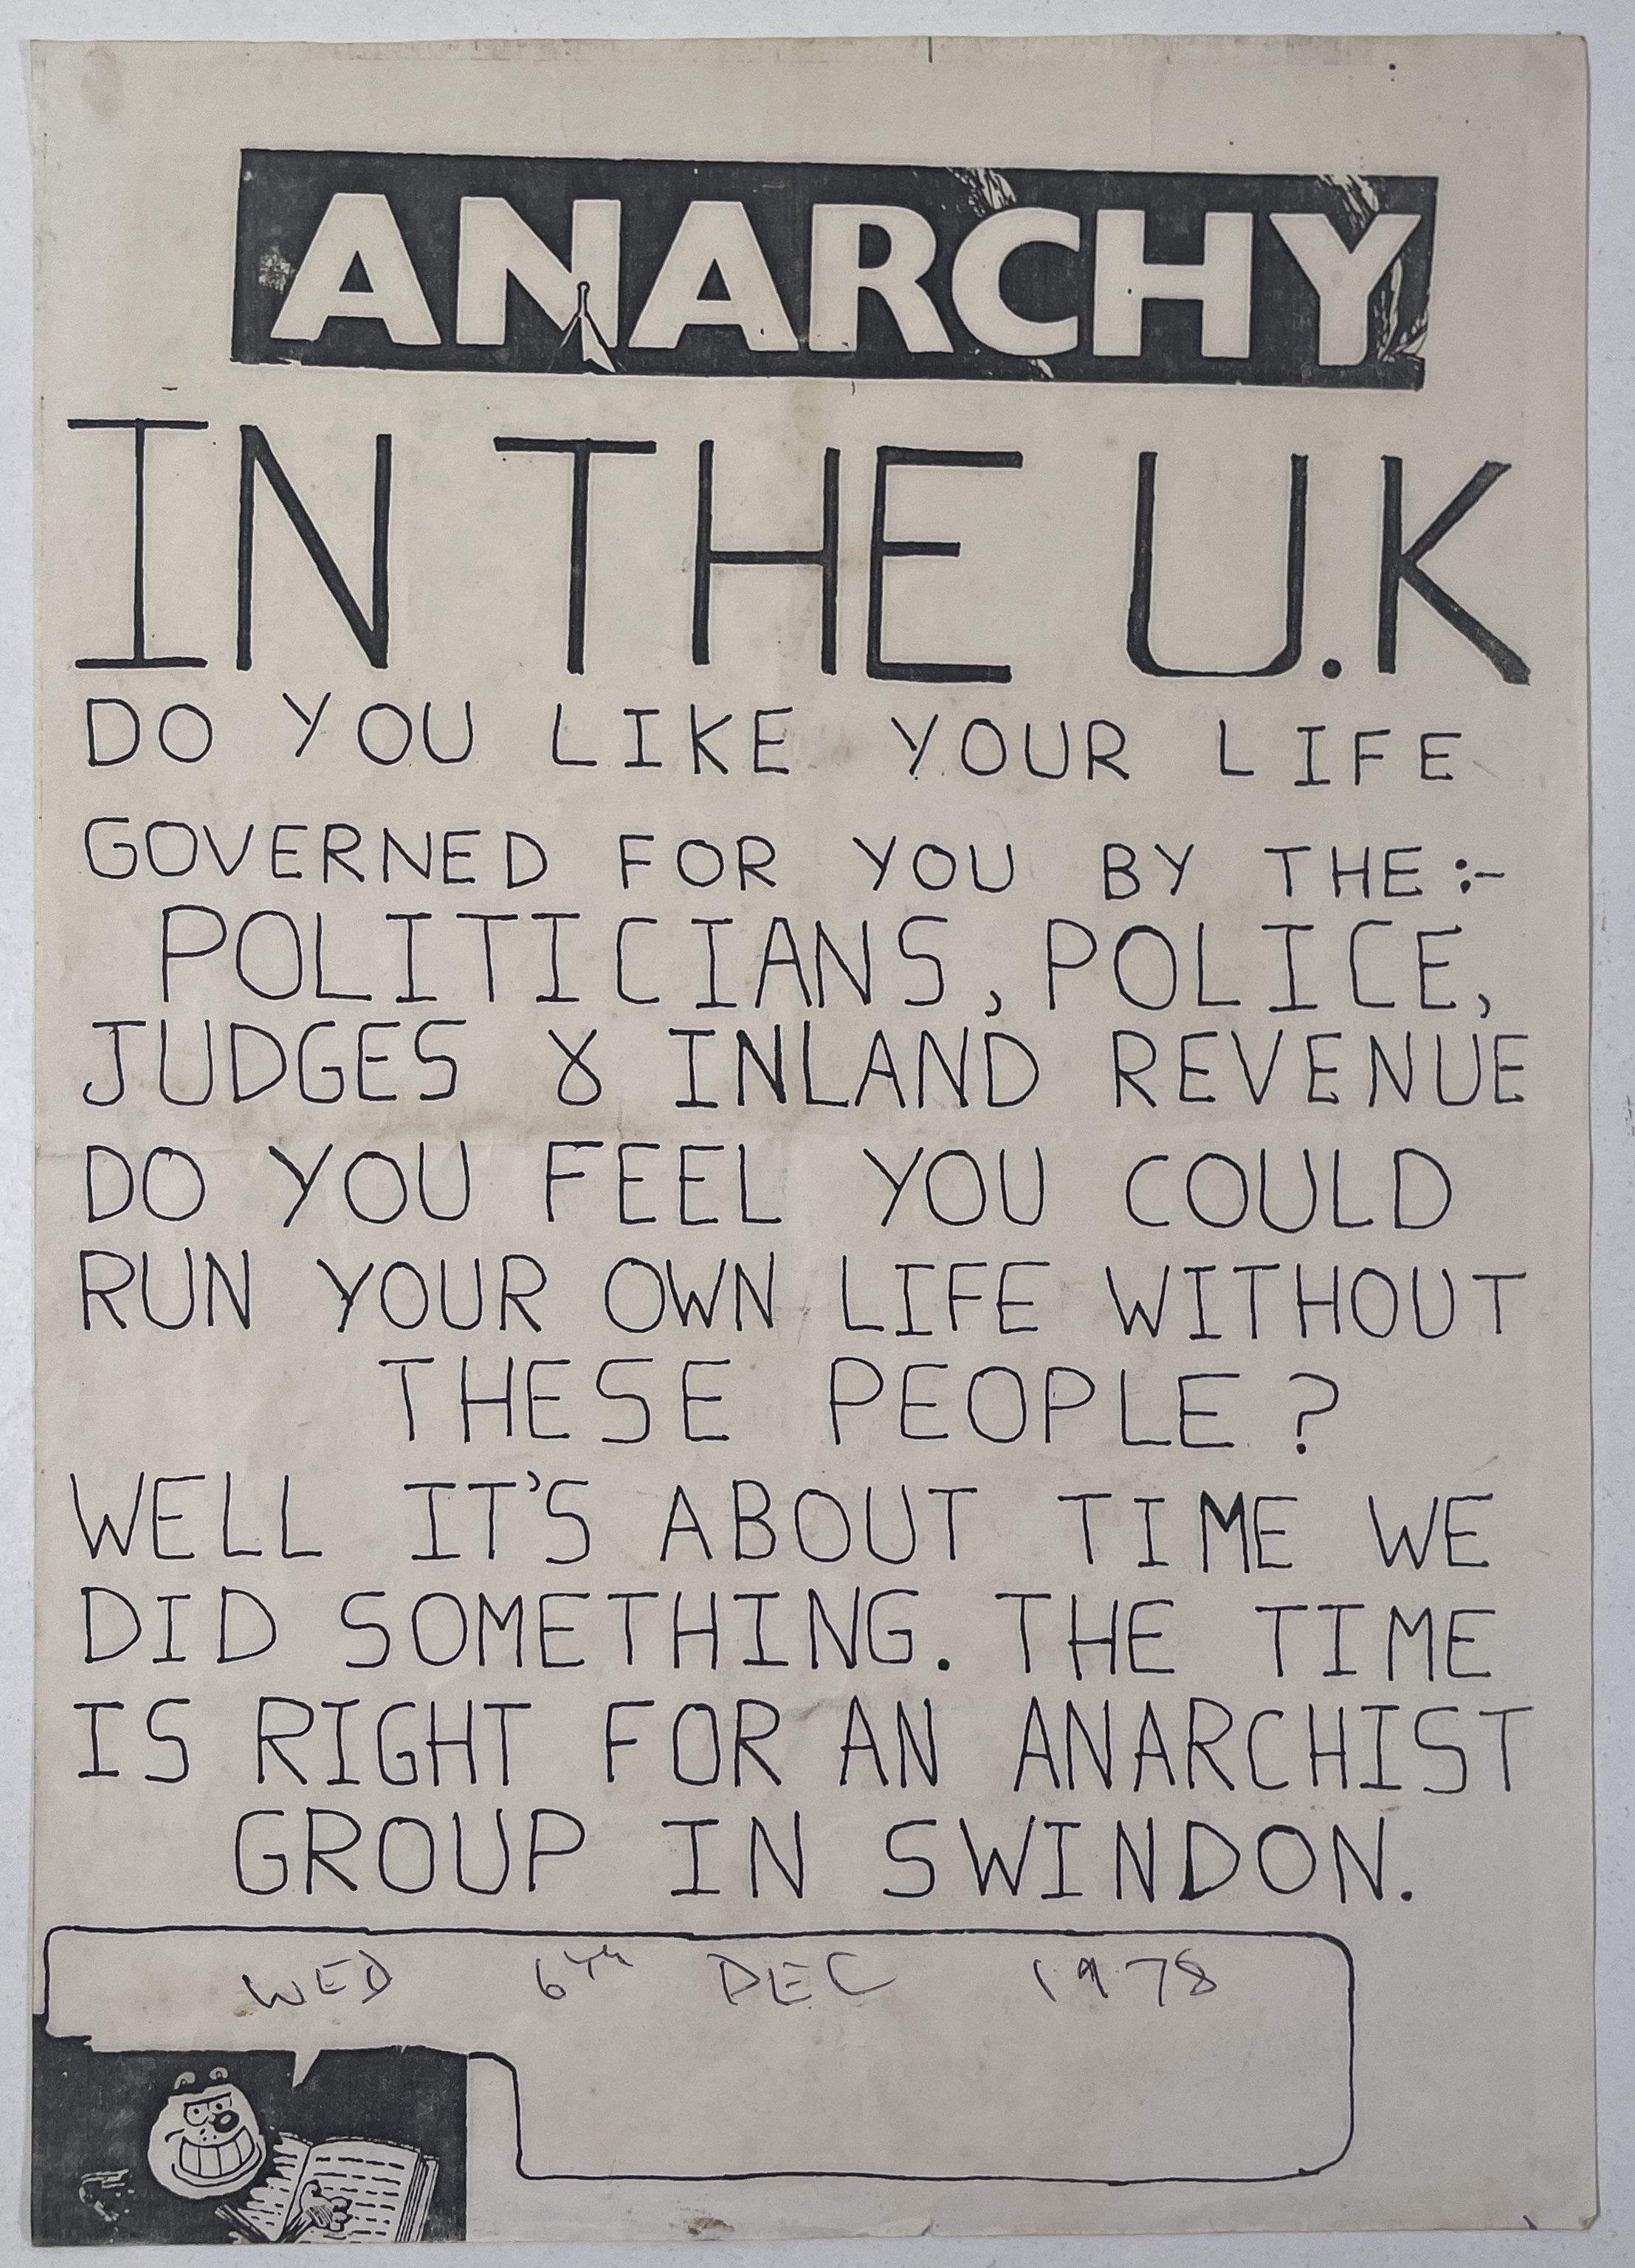 ANARCHY
IN THE U.K
DO YOU LIKE YOUR LIFE
GOVERNED FOR YOU BY THE :-
POLITICIANS, POLICE,
JUDGES & INLAND REVENUE
DO YOU FEEL YOU COULD
RUN YOUR OWN LIFE WITHOUT
THESE PEOPLE ?
WELL IT'S ABOUT TIME WE
DID SOMETHING. THE TIME
IS RIGHT FOR AN ANARCHIST
GROUP IN SWINDON.
WED 6TH DEC 1978